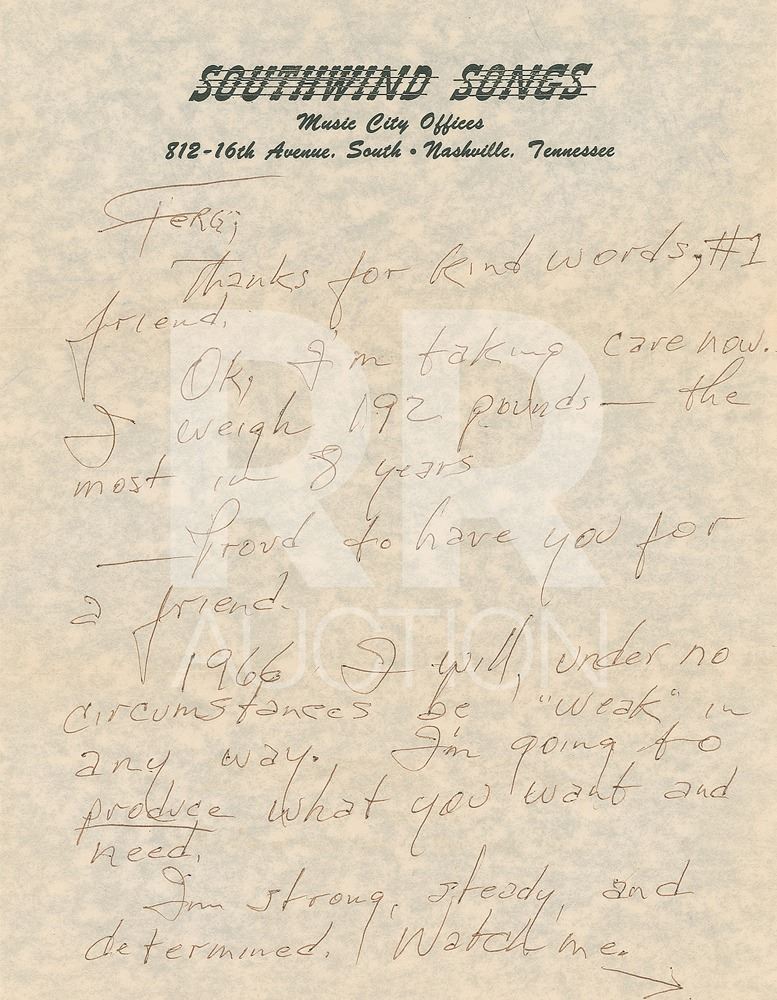 SOUTHWIND SONGS
Music City Offices
812-16th Avenue, South • Nashville, Tennessee
Ferg;
Thanks for kind words, #1
friend.
Ok, I'm taking care now.
I weigh 192 pounds — the
most in 8 years
— Proud to have you for
a friend.
1966. I will, under no
circumstances be "weak" in
any way. I'm going to
produce what you want and
need.
I'm strong, steady, and
determined. Watch me.
RR
AUCTION